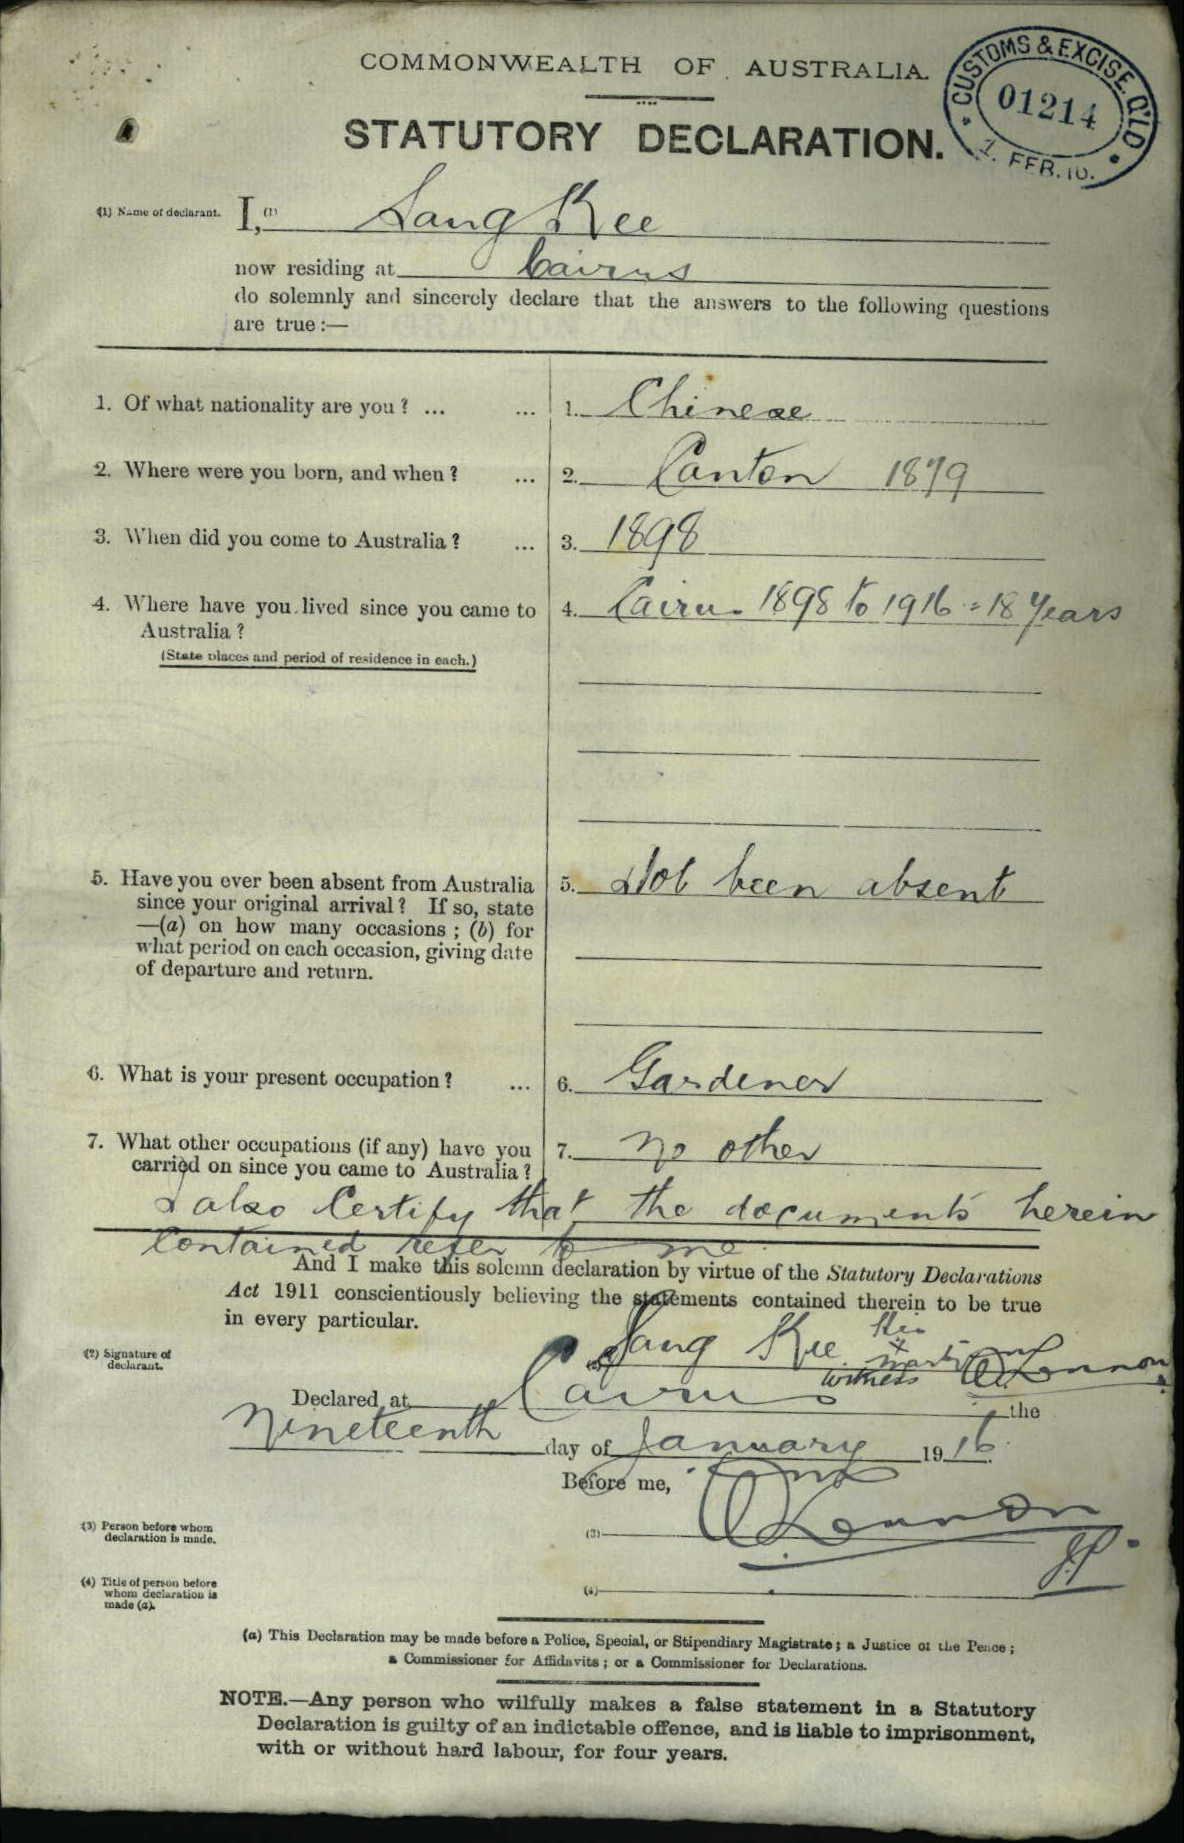 COMMONWEALTH OF AUSTRALIA.
CUSTOMS & EXCISE. Q'LD
01214
1. FEB. 16.
STATUTORY DECLARATION.
(1) Name of declarant. I, (1) Sang Kee
now residing at Cairns
do solemnly and sincerely declare that the answers to the following questions
are true:—
1. Of what nationality are you? ... ... 1. Chinese
2. Where were you born, and when? ... 2. Canton 1879
3. When did you come to Australia? ... 3. 1898
4. Where have you lived since you came to 4. Cairns 1898 to 1916 = 18 Years
Australia?
(State places and period of residence in each.)
5. Have you ever been absent from Australia 5. Not been absent
since your original arrival? If so, state
—(a) on how many occasions; (b) for
what period on each occasion, giving date
of departure and return.
6. What is your present occupation? ... 6. Gardener
7. What other occupations (if any) have you 7. No other
carried on since you came to Australia?
I also Certify that the documents herein
Contained refer to me
And I make this solemn declaration by virtue of the Statutory Declarations
Act 1911 conscientiously believing the statements contained therein to be true
in every particular.
(2) Signature of
declarant.
Sang Kee his
x
mark
witness Lennon
Declared at Cairns the
Nineteenth day of January 1916.
Before me,
(3) Person before whom
declaration is made.
(3) Lennon
JP
(4) Title of person before
whom declaration is
made (a).
(4)
(a) This Declaration may be made before a Police, Special, or Stipendiary Magistrate; a Justice of the Peace;
a Commissioner for Affidavits; or a Commissioner for Declarations.
NOTE.—Any person who wilfully makes a false statement in a Statutory
Declaration is guilty of an indictable offence, and is liable to imprisonment,
with or without hard labour, for four years.